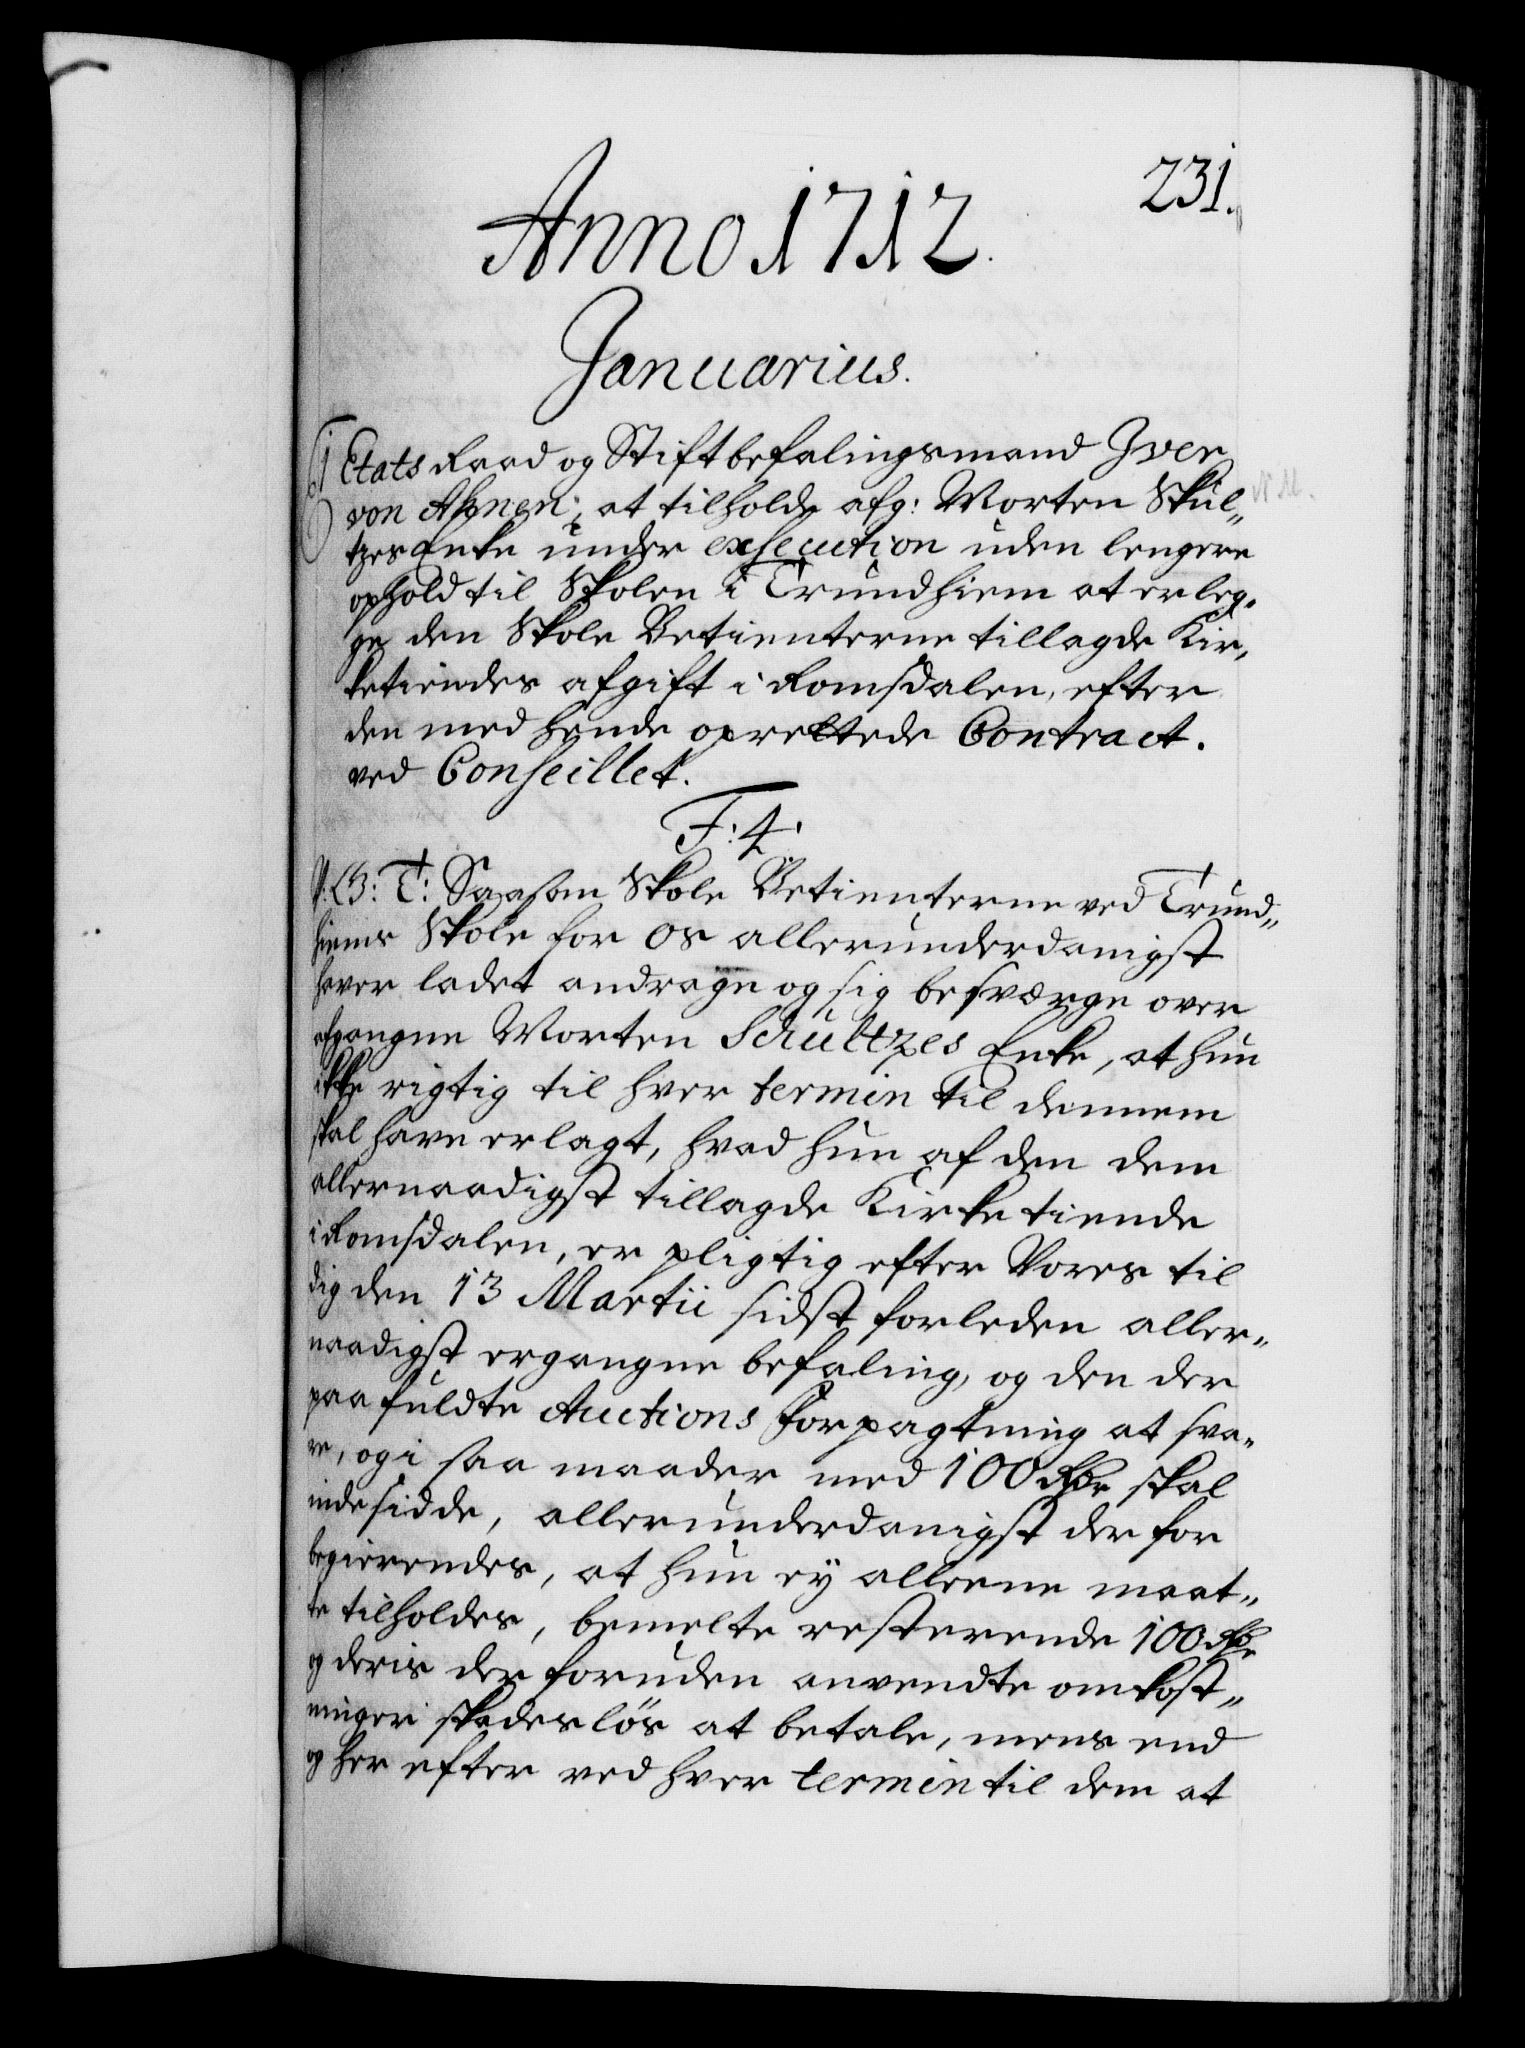 231.
Anno 1712.
Januarius.
1 Etats Raad og Stiftbefalingsmand Iver
von Ahnen, at tilholde afg: Morten Skul„
tzes Enke under exsecution uden lengere
ophold til Skolen i Trundhiem at erleg„
ge den Skole Betienterne tillagde Kir„
ketiendes afgift i Romsdalen, efter
den med hende oprettede Contract.
ved Conseillet.
F: 4:
V. G: T: Saasom Skole Betienterne ved Trund„
hiems Skole for os allerunderdanigst
haver ladet andrage og sig besværge over
afgangne Morten Schultzes Enke, at hun
ikke rigtig til hver termin til dennem
skal have erlagt, hvad hun af den dem
allernaadigst tillagde Kirketiende
i Romsdalen, er pligtig efter Vores til
dig den 13 Martii sidst forleden aller„
naadigst ergangne befaling, og den der
paa fuldte Auctions Forpagtning at sva„
re, og i saa maader med 100 Rdr skal
indesidde, allerunderdanigst der for
begierendes, at hun ey alleene maat„
te tilholdes, bemelte resterende 100 Rdr
og deris der foruden anvendte omkost„
ninger skadesløs at betale, mens end
og her efter ved hver termin til dem at